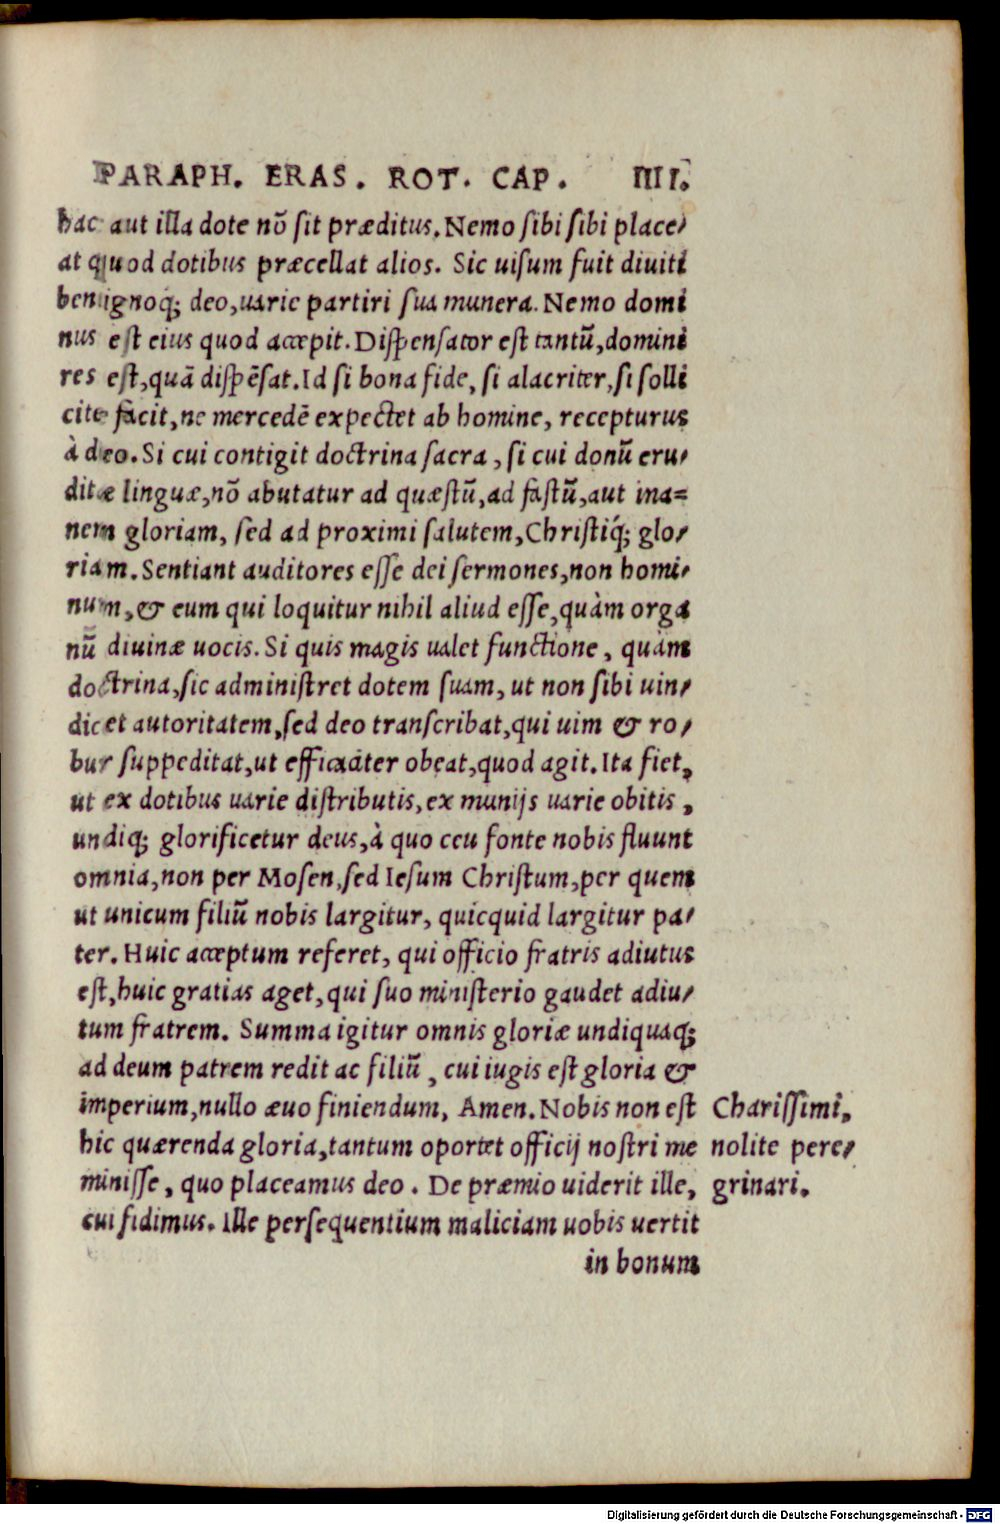 PARAPH. ERAS. ROT. CAP. IIII.
hac aut illa dote nō sit præditus. Nemo sibi sibi place/
at quod dotibus præcellat alios. Sic uisum fuit diuiti
benignoq; deo, uarie partiri sua munera. Nemo domi
nus est eius quod accepit. Dispensator est tantū, domini
res est, quā dispēsat. Id si bona fide, si alacriter, si solli
cite facit, ne mercedē expectet ab homine, recepturus
à deo. Si cui contigit doctrina sacra, si cui donū eru/
ditæ linguæ, nō abutatur ad quæstū, ad fastū, aut ina=
nem gloriam, sed ad proximi salutem, Christiq́; glo/
riam. Sentiant auditores esse dei sermones, non homi/
num, & eum qui loquitur nihil aliud esse, quàm orga
nū diuinæ uocis. Si quis magis ualet functione, quàm
doctrina, sic administret dotem suam, ut non sibi uin/
dicet autoritatem, sed deo transcribat, qui uim & ro/
bur suppeditat, ut efficaciter obeat, quod agit. Ita fiet,
ut ex dotibus uarie distributis, ex munijs uarie obitis,
undiq; glorificetur deus, à quo ceu fonte nobis fluunt
omnia, non per Mosen, sed Iesum Christum, per quem
ut unicum filiū nobis largitur, quicquid largitur pa/
ter. Huic acceptum referet, qui officio fratris adiutus
est, huic gratias aget, qui suo ministerio gaudet adiu/
tum fratrem. Summa igitur omnis gloriæ undiquaq;
ad deum patrem redit ac filiū, cui iugis est gloria &
imperium, nullo æuo finiendum, Amen. Nobis non est
hic quærenda gloria, tantum oportet officij nostri me
minisse, quo placeamus deo. De præmio uiderit ille,
cui fidimus. Ille persequentium maliciam uobis uertit
in bonum
Charissimi,
nolite pere/
grinari.
Digitalisierung gefördert durch die Deutsche Forschungsgemeinschaft - DFG